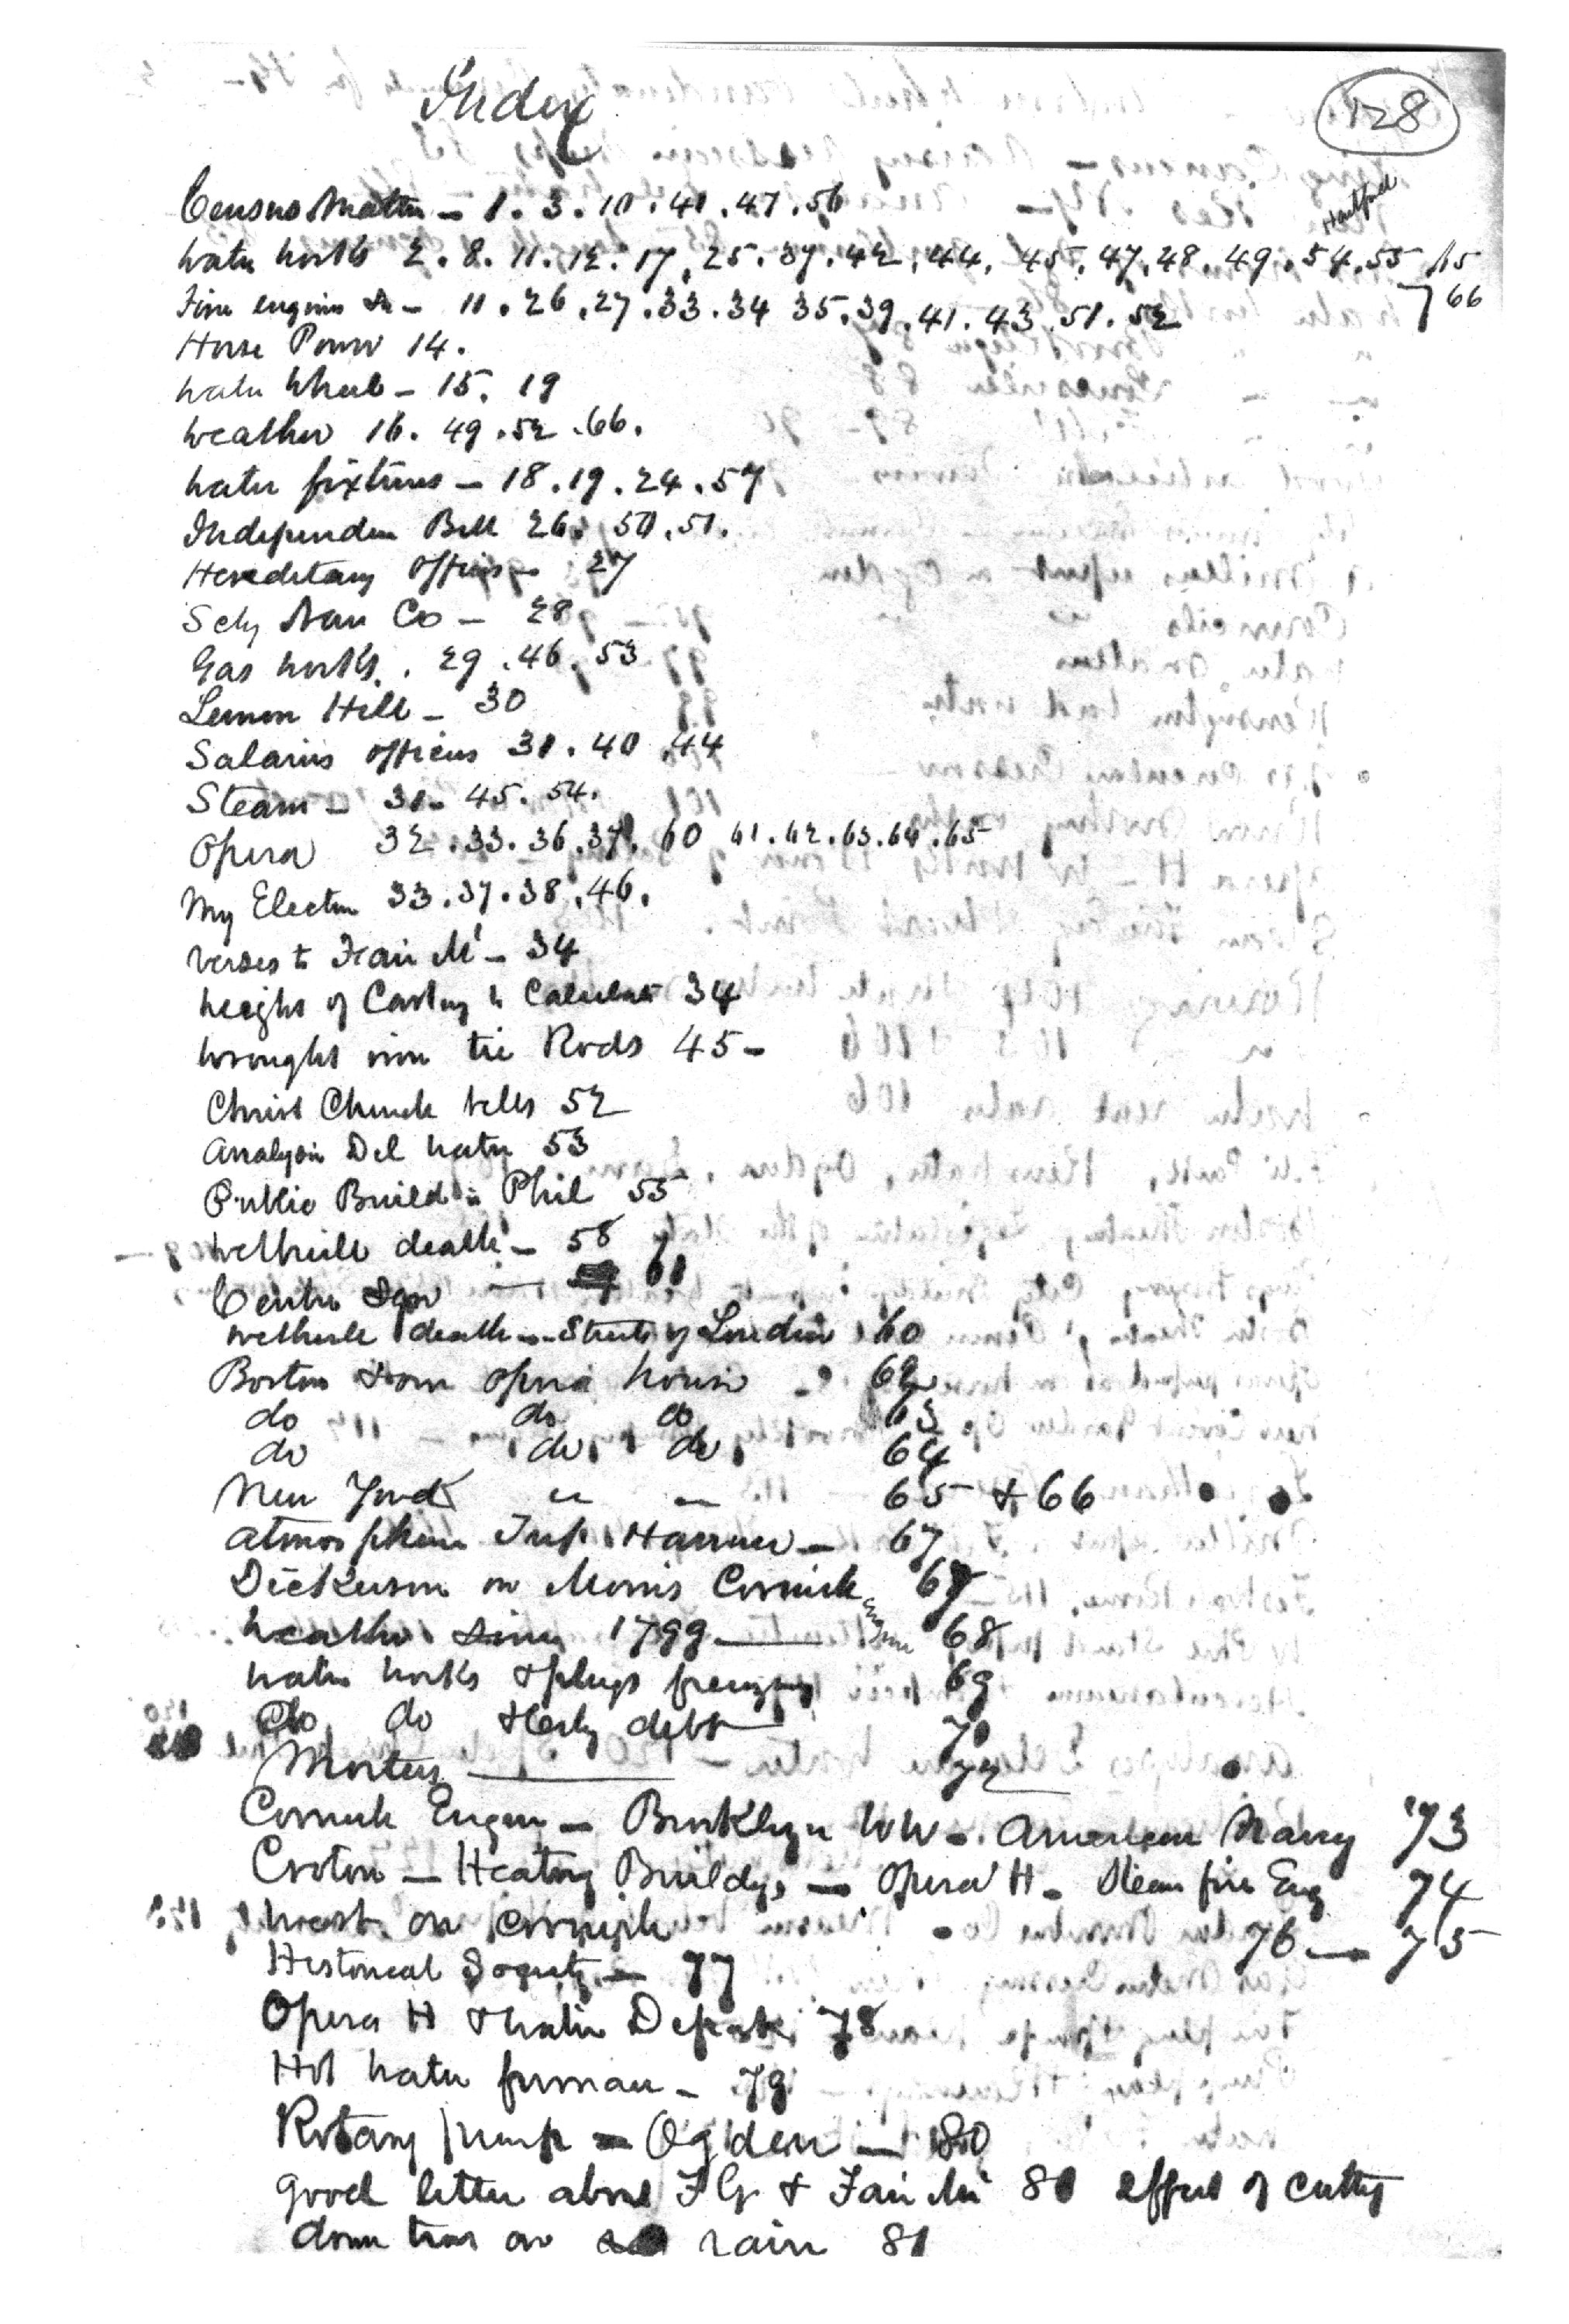 Index
128
Census Matter – 1. 3. 10. 41. 47. 56
Hartford
Water Works 2. 8. 11. 12. 17. 25. 37. 42. 44. 45. 47. 48. 49. 54. 55
66
Fire engines &c – 11. 26. 27. 33. 34 35. 39. 41. 43. 51. 52
Horse Power 14.
Water Wheel – 15. 19
Weather 16. 49. 52. 66.
Water fixtures – 18. 19. 24. 57
Independen Bell 26. 50. 51.
Hereditary Offices – 27
Schy Nav Co – 28
Gas Works. . 29. 46. 53
Lemon Hill – 30
Salaries officers 31. 40 . 44
Steam – 31 – 45. 54.
Opera 32. 33. 36. 37. 60 61. 62. 63. 64. 65
My Election 33. 37. 38. 46.
Verses to Fair Mt – 34
height of Casting to Calculate 34
Wrought iron tie Rods 45 –
Christ Church bells 52
Analysis Del Water 53
Public Build in Phil 55
Wetherill death – 58
Centre Sqr — 61
Wetherill death – Streets of London 60
Boston & Rome Opera house 62
do do do 63
do do do 64
New York " " 65 & 66
Atmosphere Inf. Harrow – 67
Dickerson on Morris Cornish engine 67
Weather since 1799 —— 68
Water Works & plugs freezing 69
Do do & City debt 70
Mortars —— 72
Cornish Engine – Brooklyn WW – American Navy 73
Croton – Heating Buildgs – Opera H – Steam fire Eng 74
West on Cornish 76 — 75
Historical Society – 77
Opera H & Water Depart 78
Hot Water furnace – 79
Rotary pump – Ogden – 80
Good letter about F G & Fair Mt 81 effect of cutting
down trees on rain 81